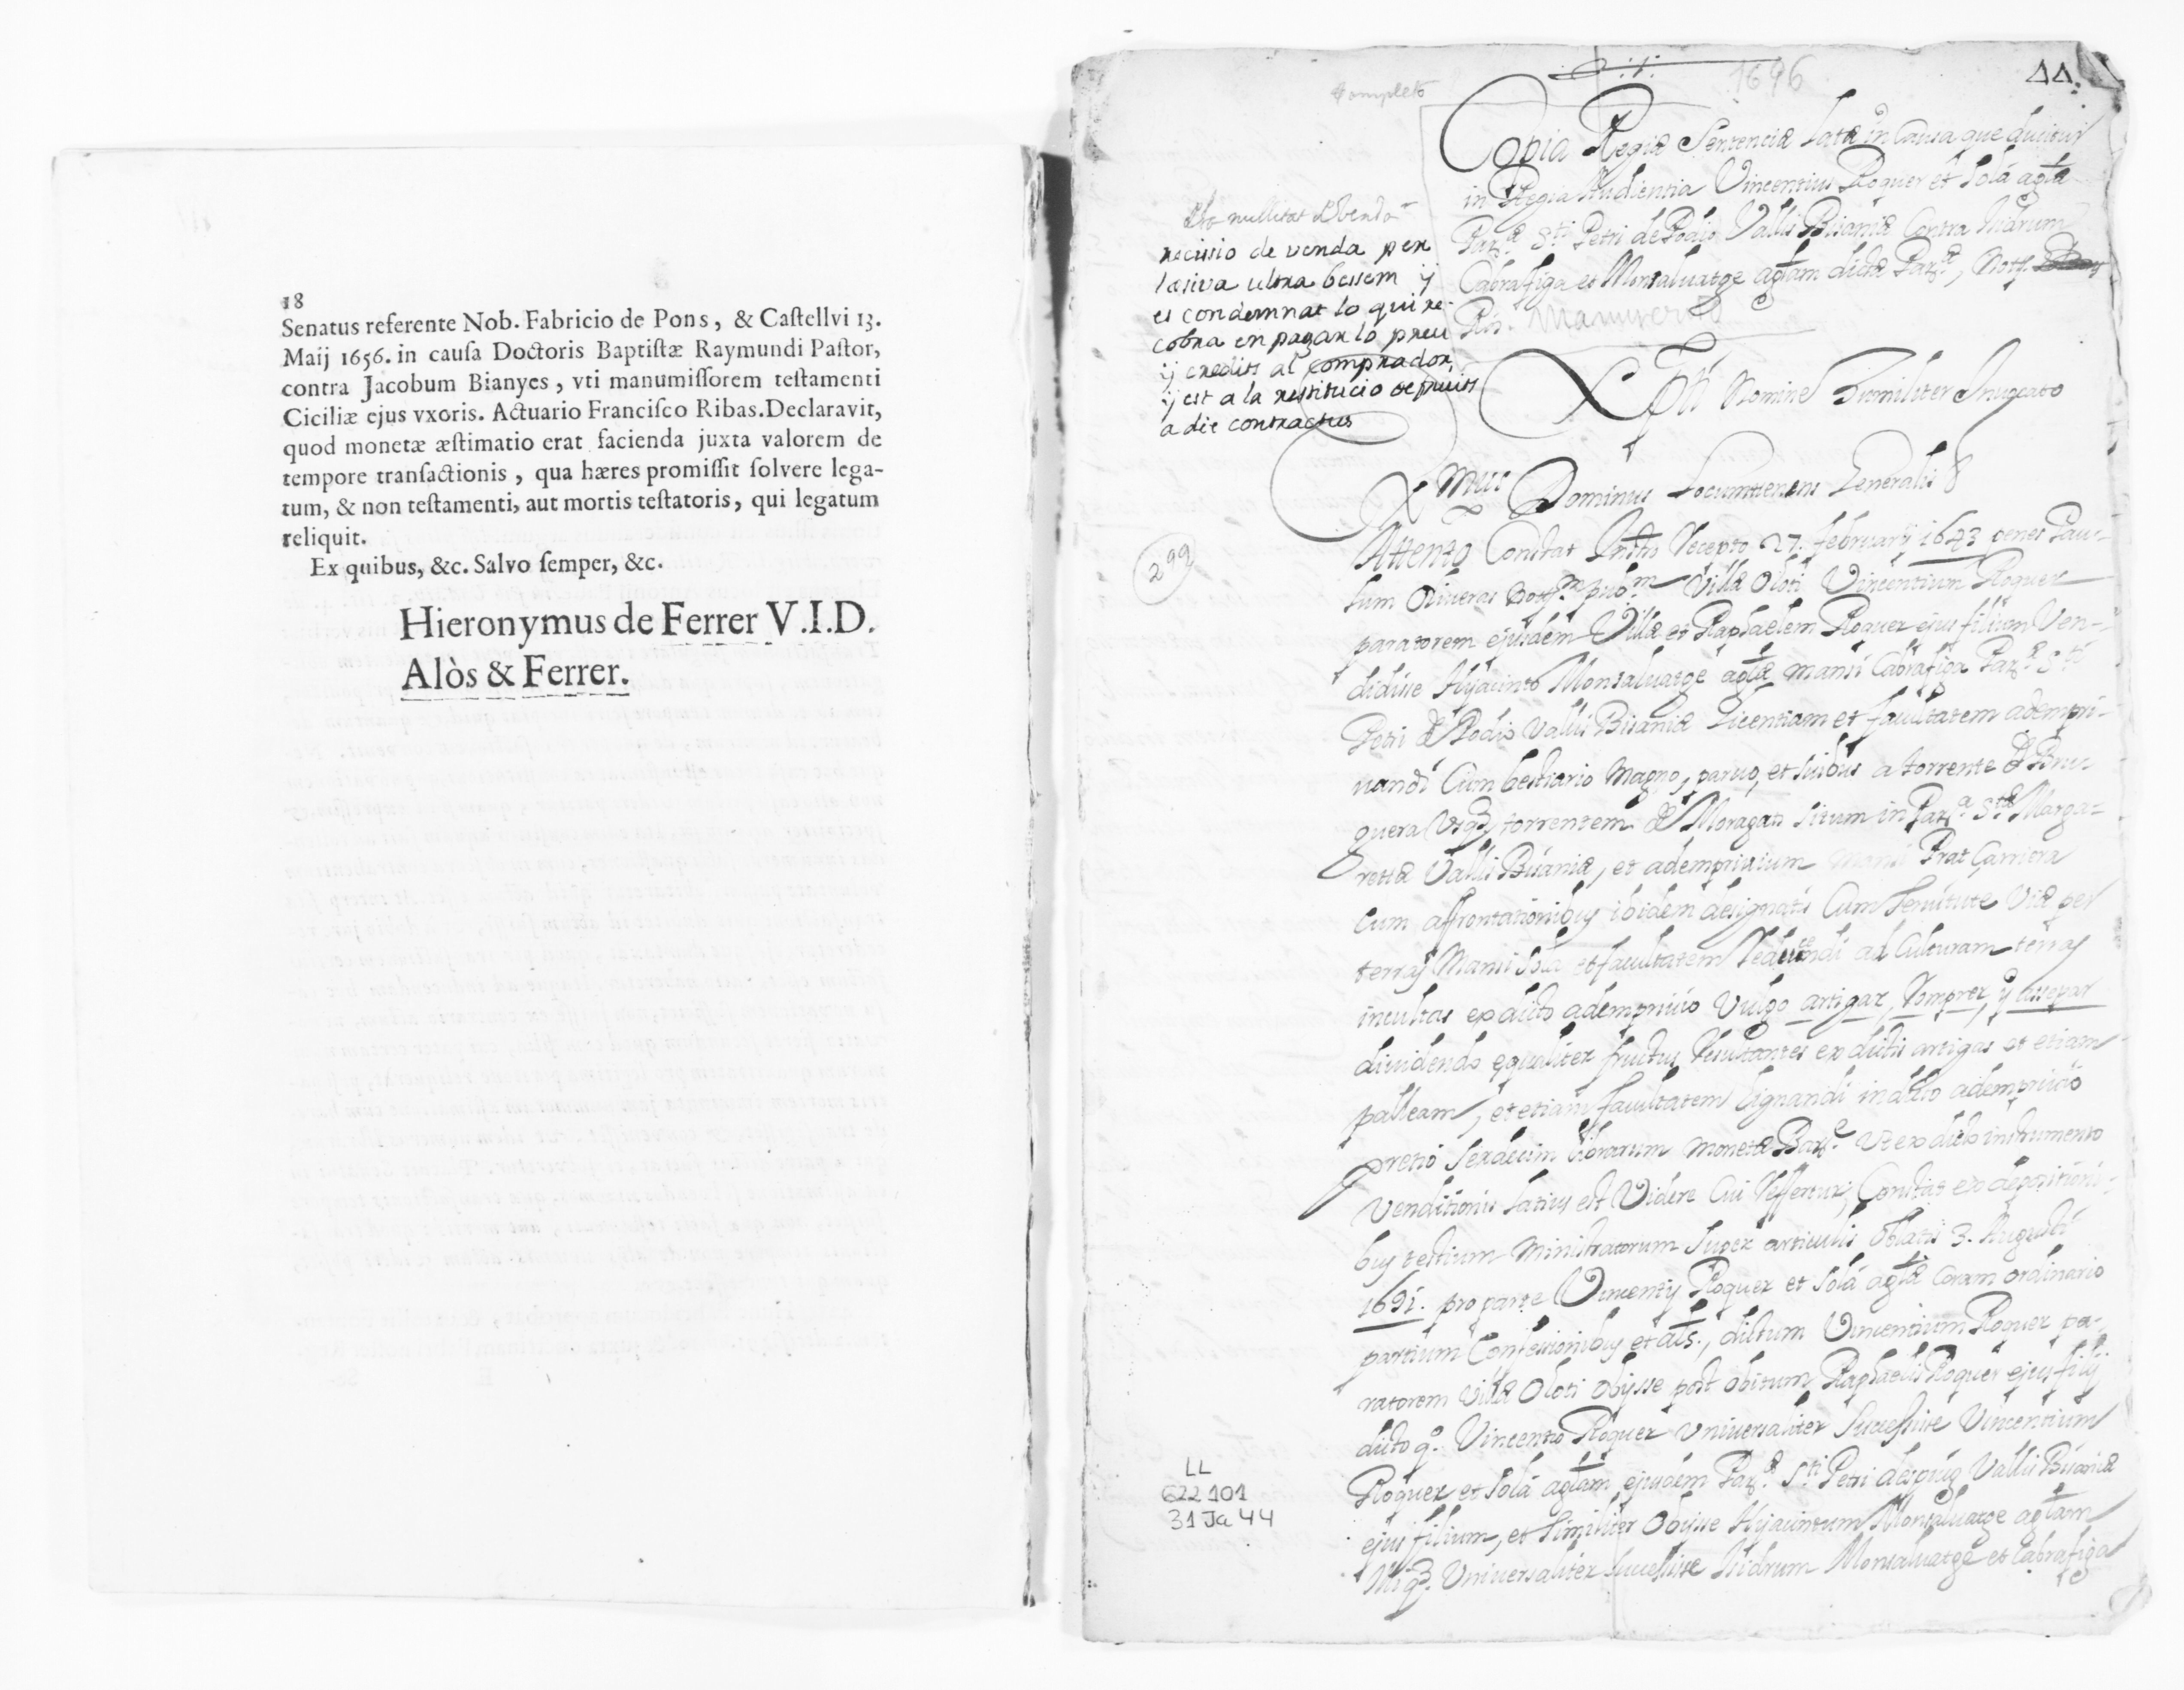 18
Senatus referente Nob. Fabricio de Pons, & Caſtellvi 13.
Maij 1656. in cauſa Doctoris Baptiſtæ Raymundi Paſtor,
contra Jacobum Bianyes, vti manumiſſorem teſtamenti
Ciciliæ ejus vxoris. Actuario Franciſco Ribas. Declaravit,
quod monetæ æſtimatio erat facienda juxta valorem de
tempore tranſactionis, qua hæres promiſſit ſolvere lega-
tum, & non teſtamenti, aut mortis teſtatoris, qui legatum
reliquit.
Ex quibus, &c. Salvo ſemper, &c.
Hieronymus de Ferrer V.I.D.
Alòs & Ferrer.
Completo
1696
44.
Copia Regiæ Sentenciæ Latæ in Causa que ducitur
in Regia Audientia Vincentius Roquer et Solá agla
Parª Sti Petri de Podio Vallis Bisaniæ Contra Isidrum
Cabrafiga et Monsalvatge aglam dictæ Parª, Noti
manuscrito
nullitat
recissio de venda per
lesiva ultra bessem y
es condemnat lo qui re-
cobra en pagar lo preu
y credits al comprador,
y est a la restitucio de fruits
a die contractus
Nomine Humiliter Invocato
Dominus Locumtenens Generalis
299
Attento Constat Instrò Recepto 27. februarij 1643 penes Pau-
lum Oliveras Notm. pubm. Villæ Oloti Vincentium Roquer
paratorem ejusdem Villæ et Raphaelem Roquer ejus filium Ven-
didisse Hyacinto Monsalvatge aglæ mansi Cabrafiga Parª Sti
Petri de Podio Vallis Bisaniæ Licentiam et facultatem adempri-
uandi Cum bestiario Magno, paruo, et suibus a torrente de Bru-
guera Vsq3 torrentem de Moragas situm in Parª Stæ Marga-
ritæ Vallis Bisaniæ, et ademprivium Prat Carrera
Cum affrontationibus ibidem designatis Cum Seruitute Viæ per
terras Mansi Solá et facultatem Reducendi ad Culturam terras
incultas ex dicto ademprivio Vulgo artigar, Romprer, y assepar
diuidendo equaliter fructus Resultantes ex dictis artigas et etiam
palleam, et etiam facultatem Lignandi in dicto ademprivio
pretio Sexdecim librarum monetæ Barª. Vt ex dicto instrumento
Venditionis Latius est Videre Cui Reffertur, Constat ex depositioni-
bus testium Ministratorum Super articulis Oblatis 3. Augusti
1691. pro parte Vincentij Roquer et Solá aglæ Coram ordinario
partium Confessionibus et als., dictum Vincentium Roquer pa-
ratorem Villæ Oloti Obijsse post obitum Raphaelis Roquer ejus filij
dicto qº. Vincentio Roquer Vniversaliter Successisse Vincentium
Roquer et Solá aglam ejusdem Parª. Sti Petri despuig Vallis Bisaniæ
ejus filium, et Similiter Obijsse Hyacintum Monsalvatge aglam
Vniversaliter Successisse Isidrum Monsalvatge et Cabrafiga
LL
622 101
31 Ja 44